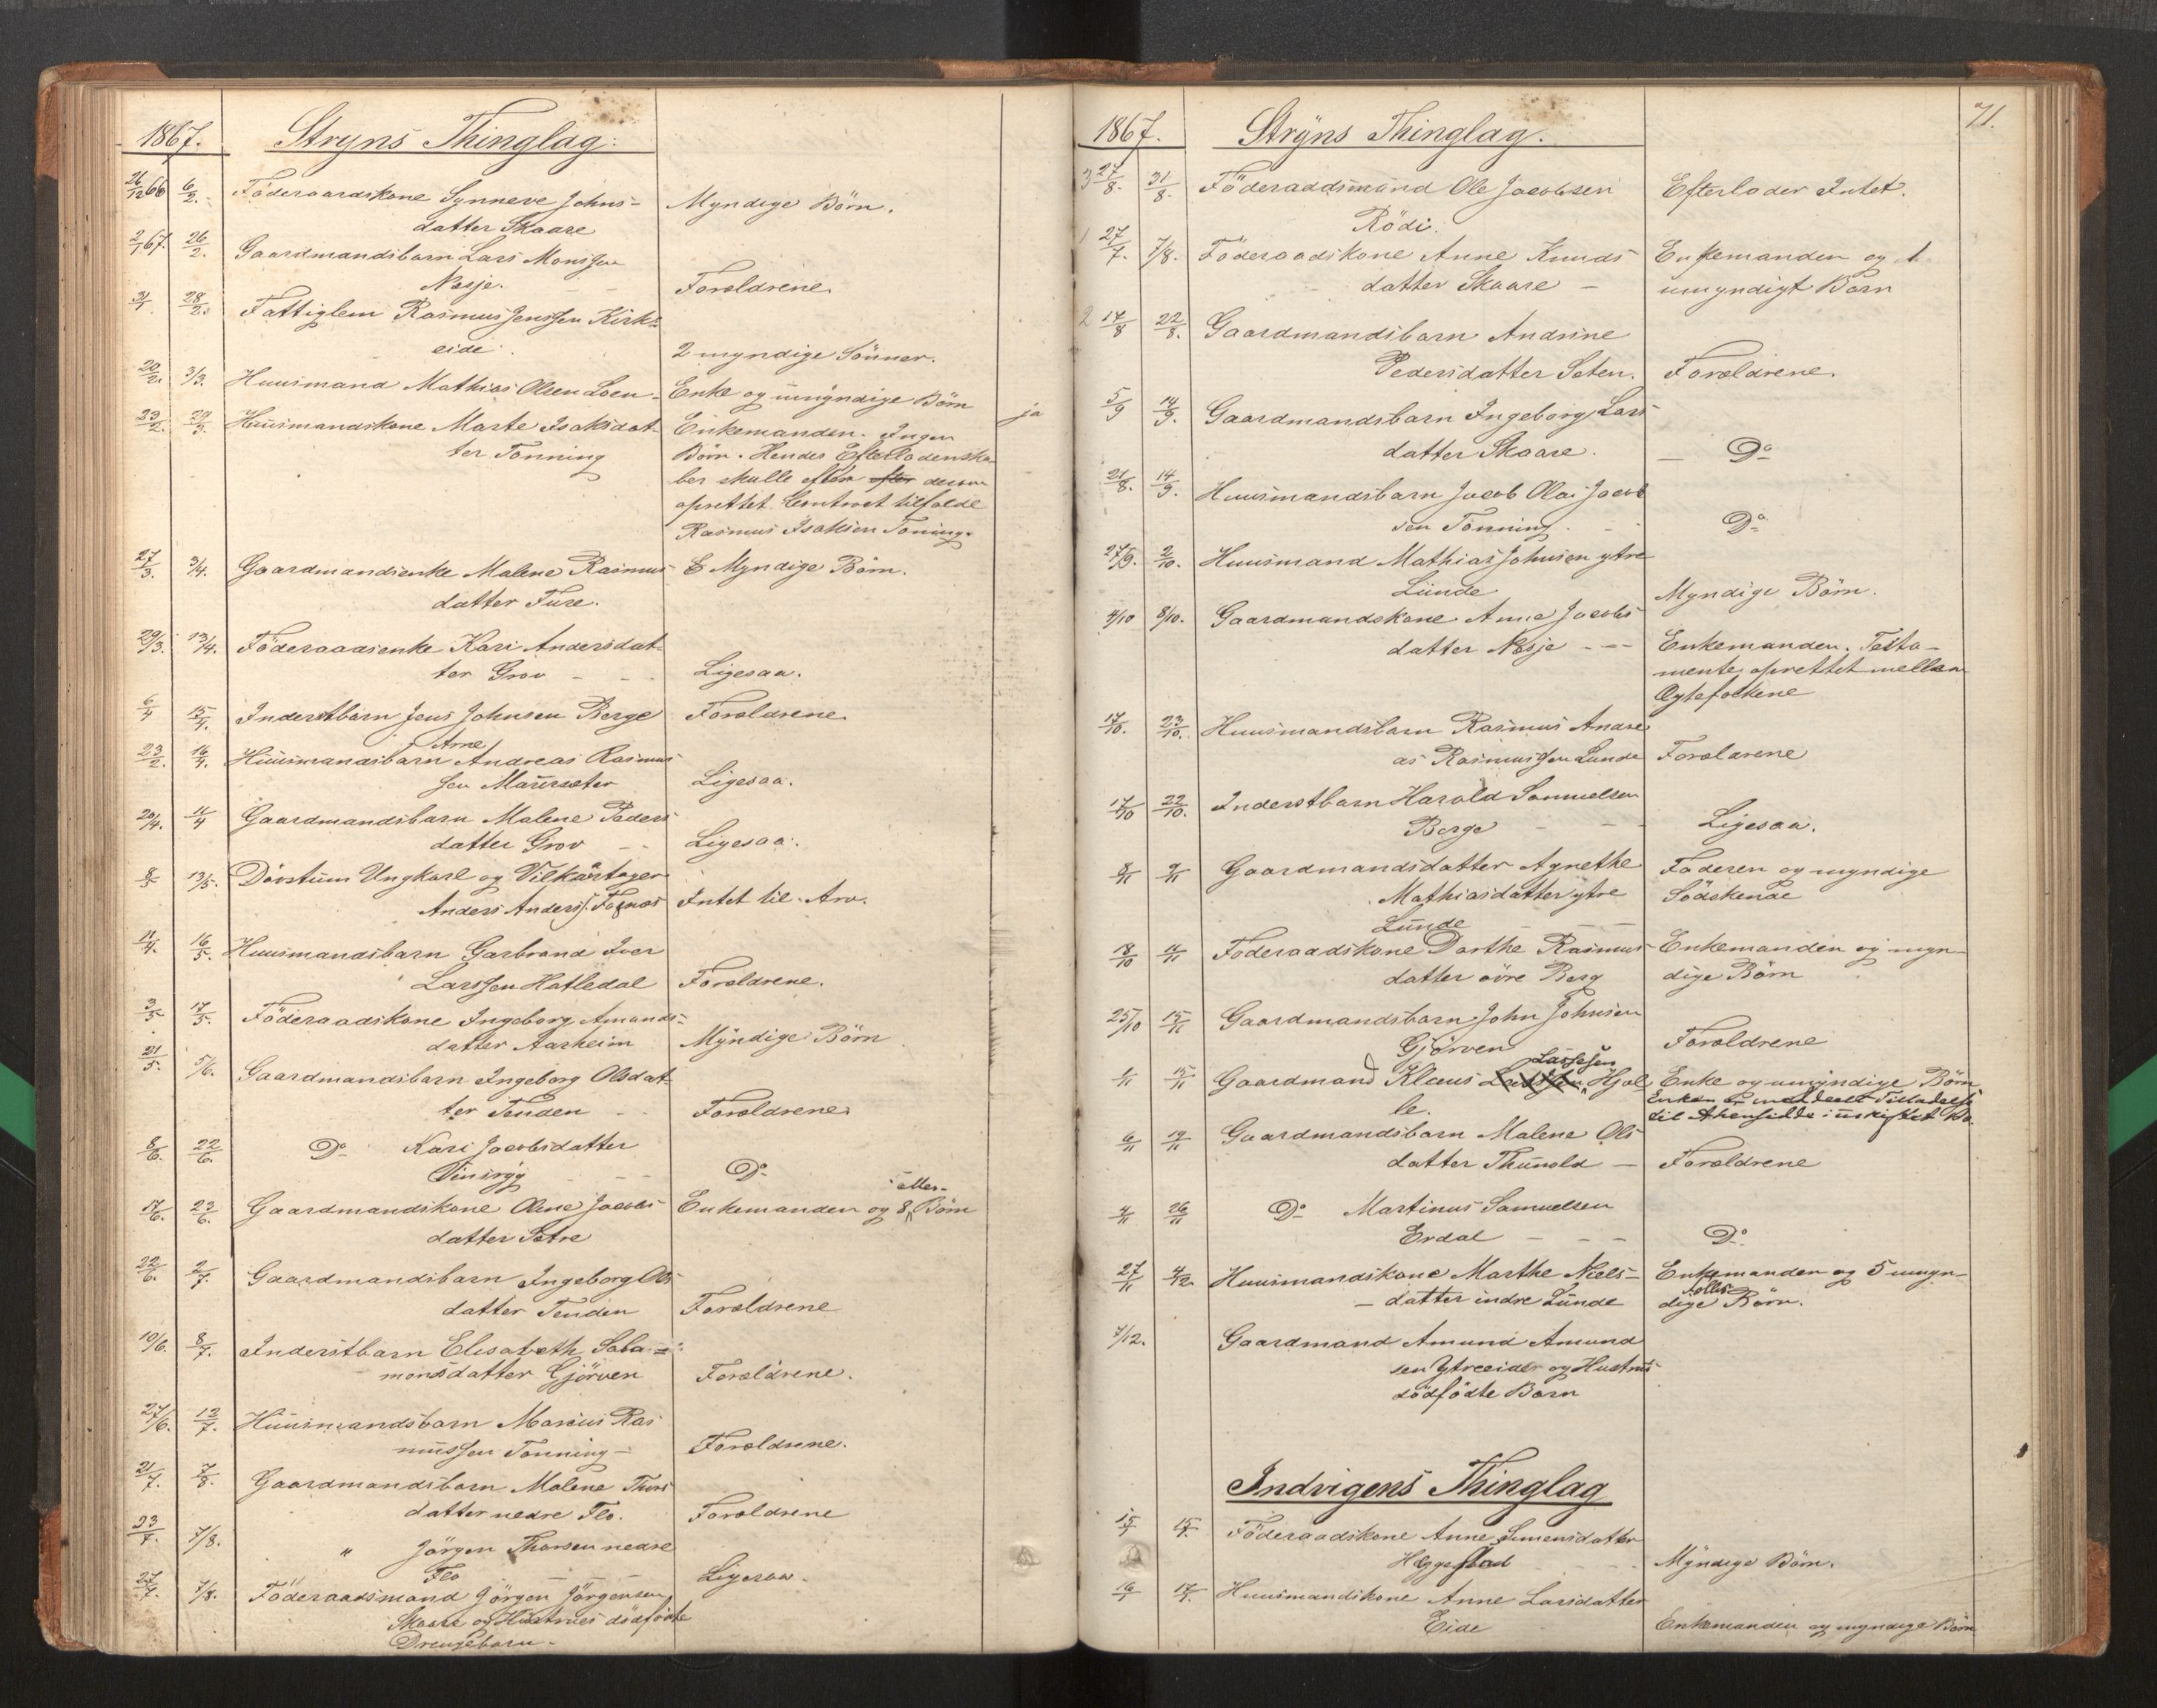 1867. Stryns Thinglag.
26/12 66 6/2. Föderaadskone Synneve Johns- Myndige Börn.
datter Skaare
2/1 67. 26/2. Gaardmandsbarn Lars Monssen
Nesje. Forældrene.
28/2. Fattiglem Rasmus Jenssen Kirk-
eide. 2 myndige Sönner.
20/2. 3/3. Huusmand Mathias Olsen Loen- Enke og umyndige Börn ja
23/2. Huusmandskone Marte Isaksdat- Enkemanden. Ingen
ter Tonning Börn. Hendes Efterladenska-
ber skulle efter
oprettet Contract tilfalde
Rasmus Isaksen Toning.
27/3. 3/4. Gaardmandsenke Malene Rasmus- Myndige Börn.
datter Fure.
29/3. 13/4. Föderaadsenke Kari Andersdat-
ter Grov - - Ligesaa.
6/4 15/4. Inderstbarn Jens Johnsen Berge Forældrene.
Arne
23/2. 16/4. Huusmandsbarn Andreas Rasmus-
sen Maurseter Ligesaa.
20/4. Gaardmandsbarn Malene Peders-
datter Grov - - Ligesaa.
8/5 13/5. Dövstum Ungkarl og Vilkårtager
Anders Anderss. Fosnæs Intet til Arv.
11/4. 16/5. Huusmandsbarn Garbrand Iver
Larssen Hatledal Forældrene.
3/5 17/5. Föderaadskone Ingeborg Amunds-
datter Aarheim Myndige Börn
21/5. 5/6. Gaardmandsbarn Ingeborg Olsdat-
ter Tenden - - Forældrene
8/6. 22/6. Do Kari Jacobsdatter
Vinsryg Do
eller-
17/6. 23/6. Gaardmandskone Olene Jacobs- Enkemanden og 8 Börn
datter Setre
22/6. 2/7. Gaardmandsbarn Ingeborg Ols-
datter Tenden Forældrene
10/6. 8/7. Inderstbarn Elisabeth Salo=
monsdatter Gjörven Forældrene.
27/6. 12/7. Huusmandsbarn Marius Ras-
mussen Tonning - Forældrene.
21/7. 7/8. Gaardmandsbarn Malene Thors-
datter nedre Flo. Forældrene
23/7. 7/8. " Jörgen Thorsen nedre
Flo Ligesaa.
27/7. 7/8. Föderaadsmand Jörgen Jörgensen
Skaare og Hustrues dödfödte
Drengebarn.
71.
1867. Stryns Thinglag.
3 27/8. 31/8. Föderaadsmand Ole Jacobsen Efterlader Intet.
Rödi.
1 27/7. 7/8. Föderaadskone Anne Knuds- Enkemanden og 1
datter Skaare - umyndigt Barn
2 17/8 22/8. Gaardmandsbarn Andrine
Pedersdatter Seten. Forældrene.
5/9 14/9. Gaardmandsbarn Ingeborg Lars-
datter Skaare. - Do
21/8. 14/9. Huusmandsbarn Jacob Olai Jacob-
sen Tonning. - Do
27/9. 2/10. Huusmand Mathias Johnsen ytre
Lunde Myndige Börn.
4/10 8/10. Gaardmandskone Anne Jacobs-
datter Nesje - - Enkemanden. Testa-
mente oprettet mellem
Ægtefolkene
17/10. 23/10. Huusmandsbarn Rasmus Andre-
as Rasmussen Lunde Forældrene
17/10 22/10. Inderstbarn Harald Samuelsen
Berge - - Ligesaa.
8/11 9/11 Gaardmandsdatter Agnethe Faderen og myndige
Mathiasdatter ytre Södskende
Lunde
18/10 Föderaadskone Dorthe Rasmus- Enkemanden og myn-
datter övre Berg dige Börn
25/10 15/11 Gaardmandsbarn John Johnsen
Gjörven Forældrene
Lassesen
1/11 15/11 Gaardmand Klaus Hjel- Enke og umyndige Börn
le. Enken er meddeelt Tilladelse
til at hensidde i uskiftet Bo.
6/11 19/11 Gaardmandsbarn Malene Ols-
datter Thunold - Forældrene
4/11 26/11 Do Martinus Samuelsen
Erdal - - - Do
27/11 4/12. Huusmandskone Marthe Niels- Enkemanden og 5 umyn-
- datter indre Lunde dige Börn.
7/12. Gaardmand Amund Amund-
sen Ytreeide og Hustrus
dödfödte Barn
Indvigens Thinglag
15/1 Föderaadskone Anne Simensdatter
Heggestad - - Myndige Börn.
16/1 17/1. Huusmandskone Anne Larsdatter
Eide Enkemanden og myndige Börn